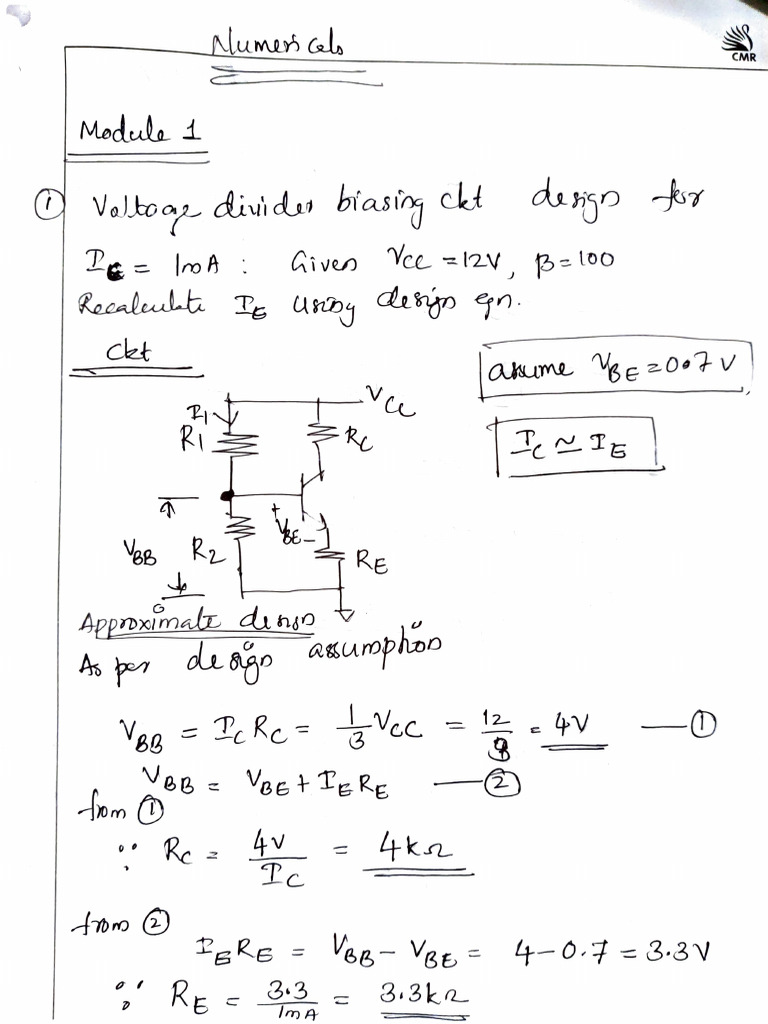 Numericals
CMR
Module 1
① Voltage divider biasing ckt design for
I_E = 1mA : Given VCC = 12V, β = 100
Recalculate I_E using design eqn.
Ckt
assume V_BE = 0.7V
I_C ≃ I_E
VCC
I1
R1
RC
+
V_BE −
V_BB R2
RE
Approximate design
As per design assumption
V_BB = I_C R_C = 1/3 VCC = 12/3 = 4V —①
V_BB = V_BE + I_E R_E —②
from ①
∵ R_C = 4V/I_C = 4kΩ
from ②
I_E R_E = V_BB − V_BE = 4 − 0.7 = 3.3V
∵ R_E = 3.3/1mA = 3.3kΩ